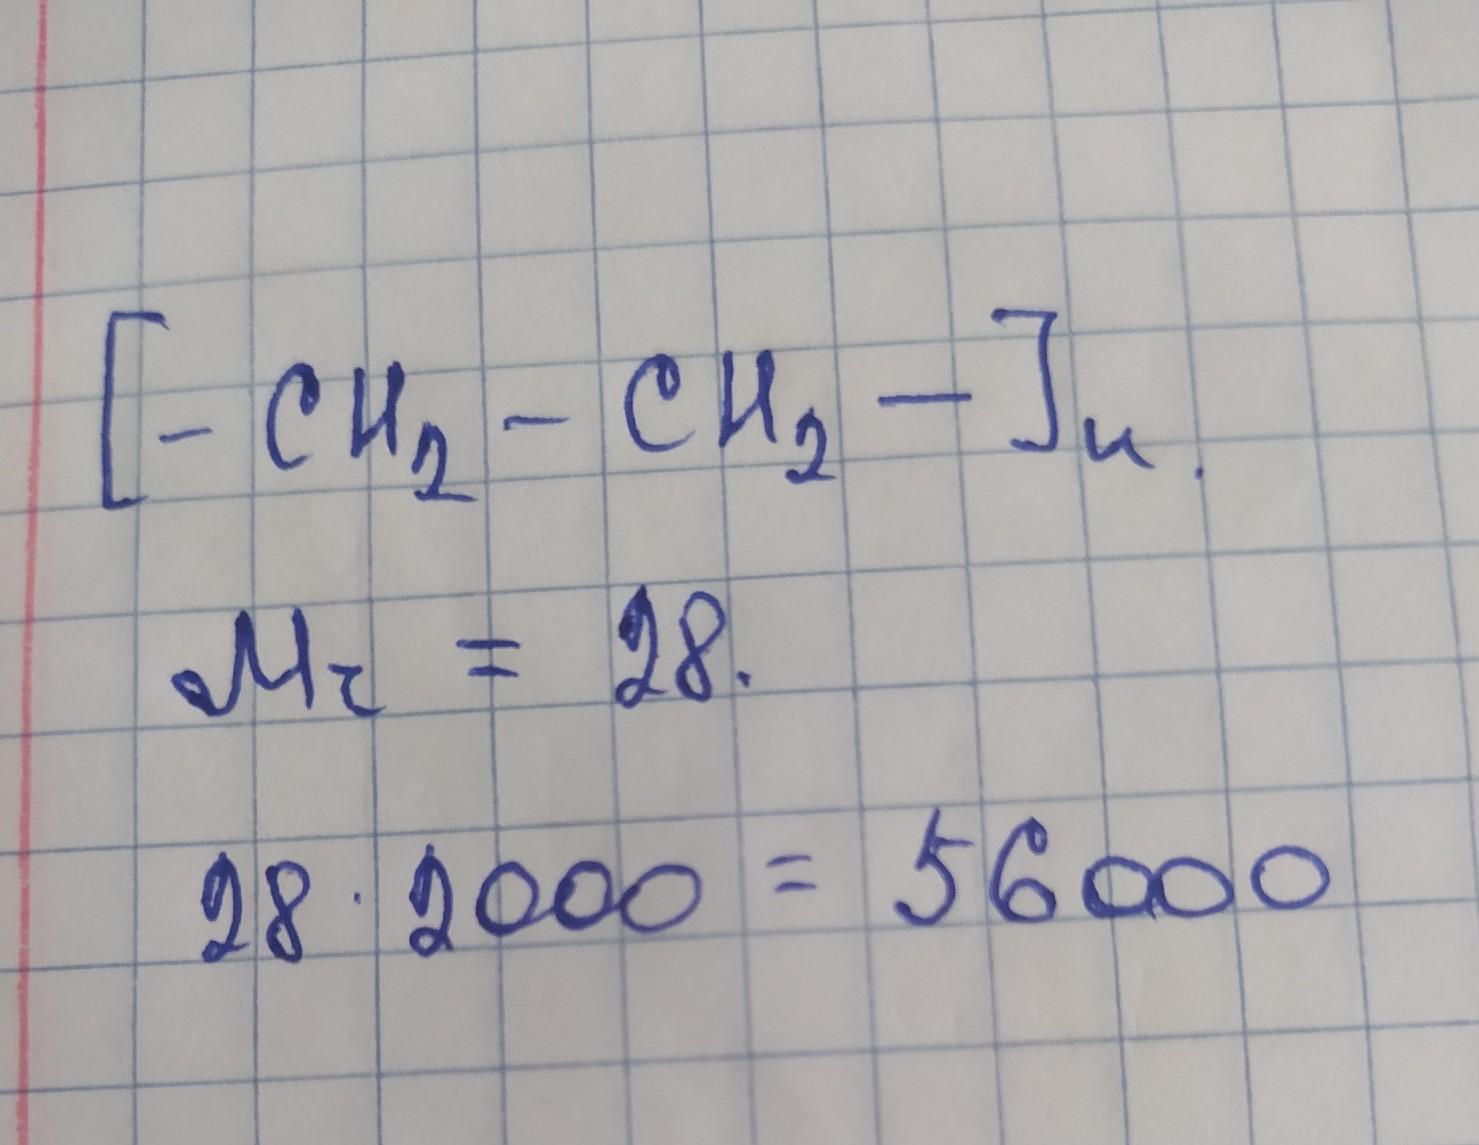 [- CH₂ - CH₂ -]n.
Mr = 28.
28 · 2000 = 56000